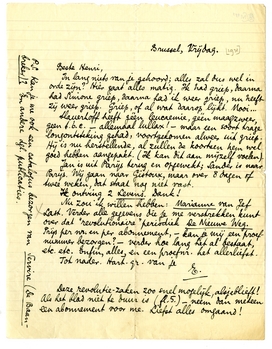 Brussel, Vrijdag.
Beste Henri,
In lang niets van je gehoord; alles zal dus wel in
orde zijn? Hier gaat alles matig. Ik had griep, daarna
had Simone griep, daarna had ik weer griep, nu heeft
zij weer griep. Griep, of al wat daarop lijkt. Mooi.
Slauerhoff heeft geen leucaemie, geen maagzweer,
geen t.b.c. — allemaal lullen! — maar een soort trage
longontsteking gehad, voortgekomen alweer van griep.
Hij is nu herstellende, al zullen de koorten hem wel
goed hebben aangepakt. (Ik kan hem mijzelf voelen)
Jan is uit Parijs terug en opgewekt;
Parijs. Wij gaan naar Gistoux, maar over 8 dagen of
twee weken, dat staat nog niet vast.
Ik ontving 2 Levens. Dank!
Nu zou ik willen hebben: Marianne van Jef
Last. Verder alle gegevens die je me verstrekken kunt
over dat "revolutionaire" periodiek De Nieuwe Weg.
Prijs per nr. en per abonnement, — kan je me al een proef-
nummer bezorgen? — verder hoe lang het al bestaat,
etc. etc. Enfin, alles, en een proefnr. het allerliefst.
Tot nader. Hart. gr. van je
E.
Deze revolutie-zaken zoo snel mogelijk, alsjeblieft!
Als het blad niet te duur is (R.S.) — neem dan meteen
een abonnement voor me. Liefst alles omgaand!
P.S. Kan je me ook een catalogus bezorgen van Servire (De Baan-
breker)? En andere dgl. publicaties?